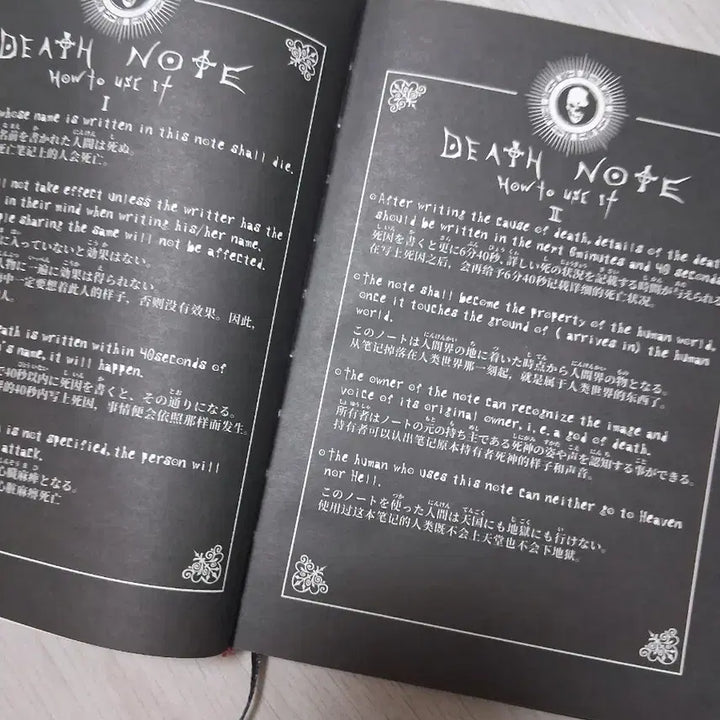 DEATH NOTE
How to use it
I
whose name is written in this note shall die.
名前を書かれた人間は死ぬ。
死亡笔记上的人会死亡。
not take effect unless the writter has the
in their mind when writing his/her name.
sharing the same will not be affected.
に入っていないと効果はない。
人物に一遍に効果は得られない
中一定要想着此人的样子，否则没有效果。因此，
人。
is written within 40seconds of
name, it will happen.
40秒以内に死因を書くと、その通りになる。
的40秒内写上死因，事情便会依照那样而发生。
is not specified, the person will
attack.
心臓麻痺となる。
心脏麻痹死亡
DEATH NOTE
How to use it
II
After writing the cause of death, details of the death
should be written in the next 6minutes and 40 seconds
死因を書くと更に6分40秒、詳しい死の状況を記載する時間が与えられる
在写上死因之后，会再给予6分40秒记载详细的死亡状况。
the note shall become the property of the human world,
once it touches the ground of ( arrives in) the human
world.
このノートは人間界の地に着いた時点から人間界の物となる。
从笔记掉落在人类世界那一刻起，就是属于人类世界的东西了。
the owner of the note can recognize the image and
voice of its original owner, i.e. a god of death.
所有者はノートの元の持ち主である死神の姿や声を認知する事ができる。
持有者可以认出笔记原本持有者死神的样子和声音。
the human who uses this note can neither go to Heaven
nor Hell.
このノートを使った人間は天国にも地獄にも行けない。
使用过这本笔记的人类既不会上天堂也不会下地狱。